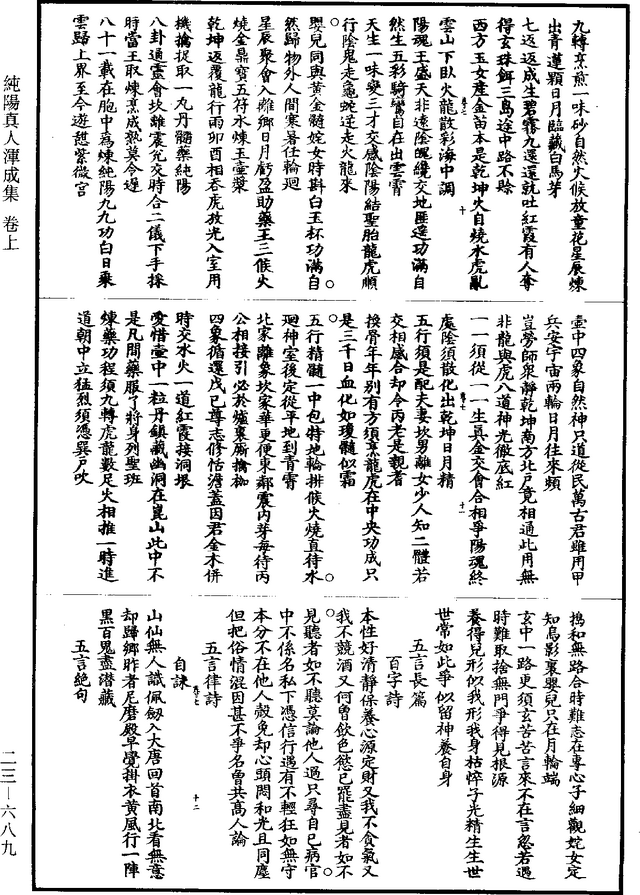 純陽真人渾成集 卷上
二三—六八九
九轉烹煎一味砂自然火候放童花星辰煉
出青蓮顆日月臨藏白馬芽
七返返成生碧霧九還還就吐紅霞有人奪
得玄珠餌三島途中路不賒
西方玉女產金苗本是乾坤火自燒水虎亂
雲山下臥火龍散彩海中調
陽魂王盛天非遠陰魄纏交地匪遙功滿自
然生五彩騎鸞自在出雲霄
天生一味變三才交感陰陽結聖胎龍虎順
行陰鬼走龜蛇逆走火龍來
嬰兒同與黃金髓姹女時斟白玉杯功滿自
然歸物外人間寒暑任輪迴
星辰聚會入離鄉日月虧盈助藥王三候火
燒金鼎寶五符水煉玉壺漿
乾坤返覆龍行雨卯酉相吞虎放光入室用
機擒捉取一丸丹髓藥純陽
八卦通靈會坎離震兌交時合二儀下手採
時當王取煉烹成熟莫令遲
八十一載在胞中爲煉純陽九九功白日乘
雲歸上界至今遊憩紫微宮
壺中四象自然神只道從民萬古君雖用甲
兵安宇宙兩輪日月往來頻
豈勞師衆靜乾坤南方北戶竟相通此用無
非龍與虎八道神光徹底紅
一一須從一一生眞金交會合相爭陽魂終
處陰須散化出乾坤日月精
五行須是配夫妻坎男離女少人知二體若
交相感合却令丙老是親者
換骨年年別有方須烹龍虎在中央功成只
是三千日血化如瓊髓似霜
五行精髓一中包特地輪排候火燒直待水
迴神室後定從平地到青霄
北家離象坎家華更便東鄰震內芽每待丙
公相接引必於爐裏廝擒拁
四象循還戊己尊志修恬澹蓋因君金木併
時交水火一道紅霞接洞垠
愛惜壺中一粒丹鎮藏幽洞在崑山此中不
是凡間藥服了將身列聖班
煉藥功程須九轉虎龍數足火相推一時進
道朝中立猛烈須憑巽戶吹
搗和無路合時難志在專心子細觀姹女定
知烏影裏嬰兒只在月輪端
玄中一路更須玄苦苦言來不在言忽若遇
時難取捨無門爭得見根源
養得兒形似我形我身枯悴子光精生生世
世常如此爭似留神養自身
五言長篇
百字詩
本性好清靜保養心源定財又我不貪氣又
我不競酒又何曾飲色慾已罷盡見者如不
見聽者如不聽莫論他人過只尋自己病官
中不係名私下憑信行遇有不輕狂如無守
本分不在他人殼免却心頭悶和光且同塵
但把俗情混因甚不爭名曾共高人論
五言律詩
自詠
山仙無人識佩劒入大唐回首南北看無意
却歸鄉昨者尼磨殿早覺掛衣黄風行一陣
黑百鬼盡潛藏
五言絕句